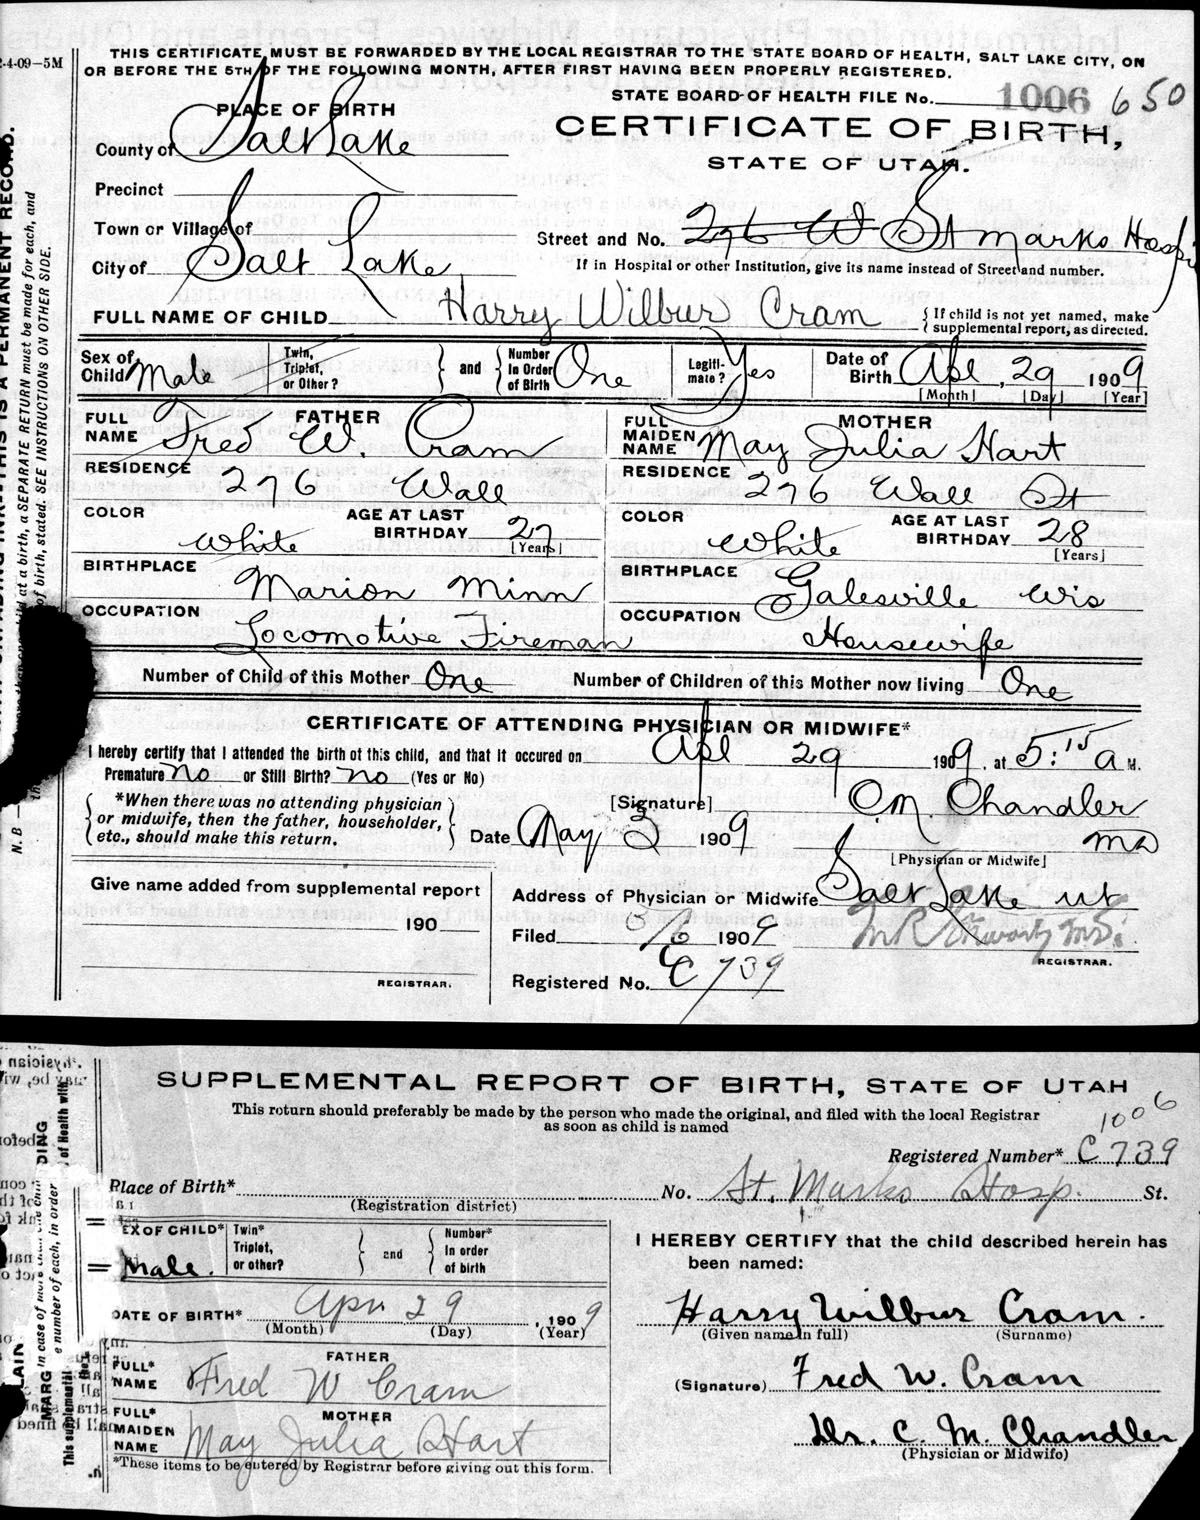 2-4-09—5M
THIS CERTIFICATE MUST BE FORWARDED BY THE LOCAL REGISTRAR TO THE STATE BOARD OF HEALTH, SALT LAKE CITY, ON
OR BEFORE THE 5TH OF THE FOLLOWING MONTH, AFTER FIRST HAVING BEEN PROPERLY REGISTERED.
STATE BOARD OF HEALTH FILE No. 1006 650
PLACE OF BIRTH
CERTIFICATE OF BIRTH,
STATE OF UTAH.
County of Salt Lake
Precinct
Town or Village of
Street and No. 276 W St Marks Hospi
City of Salt Lake
If in Hospital or other Institution, give its name instead of Street and number.
FULL NAME OF CHILD Harry Wilbur Cram { If child is not yet named, make
supplemental report, as directed.
Sex of Child Male Twin, Triplet, or Other? } and { Number In Order of Birth One Legiti-mate? Yes Date of Birth Apl, 29 1909
[Month] [Day] [Year]
FATHER MOTHER
FULL NAME Fred W. Cram FULL MAIDEN NAME May Julia Hart
RESIDENCE 276 Wall RESIDENCE 276 Wall St
COLOR White AGE AT LAST BIRTHDAY 27 [Years] COLOR White AGE AT LAST BIRTHDAY 28 [Years]
BIRTHPLACE Marion Minn BIRTHPLACE Galesville Wis
OCCUPATION Locomotive Fireman OCCUPATION Housewife
Number of Child of this Mother One Number of Children of this Mother now living One
CERTIFICATE OF ATTENDING PHYSICIAN OR MIDWIFE*
I hereby certify that I attended the birth of this child, and that it occured on Apl 29 1909, at 5:15 a M.
Premature No or Still Birth? No (Yes or No)
*When there was no attending physician
or midwife, then the father, householder,
etc., should make this return.
[Signature] C.M. Chandler
Date May 3 1909 MD
[Physician or Midwife]
Give name added from supplemental report
190
REGISTRAR.
Address of Physician or Midwife Salt Lake Ut
Filed 5/6 1909
REGISTRAR.
Registered No. C 739
SUPPLEMENTAL REPORT OF BIRTH, STATE OF UTAH
This return should preferably be made by the person who made the original, and filed with the local Registrar
as soon as child is named
1006
Registered Number* C 739
Place of Birth* No. St. Marks Hosp. St.
(Registration district)
SEX OF CHILD* Male. Twin* Triplet, or other? } and { Number* In order of birth
I HEREBY CERTIFY that the child described herein has
been named:
DATE OF BIRTH* Apr 29, 1909
(Month) (Day) (Year)
Harry Wilbur Cram.
(Given name in full) (Surname)
FATHER
FULL* NAME Fred W Cram
(Signature) Fred W. Cram
MOTHER
FULL* MAIDEN NAME May Julia Hart
Dr. C. M. Chandler
(Physician or Midwife)
*These items to be entered by Registrar before giving out this form.